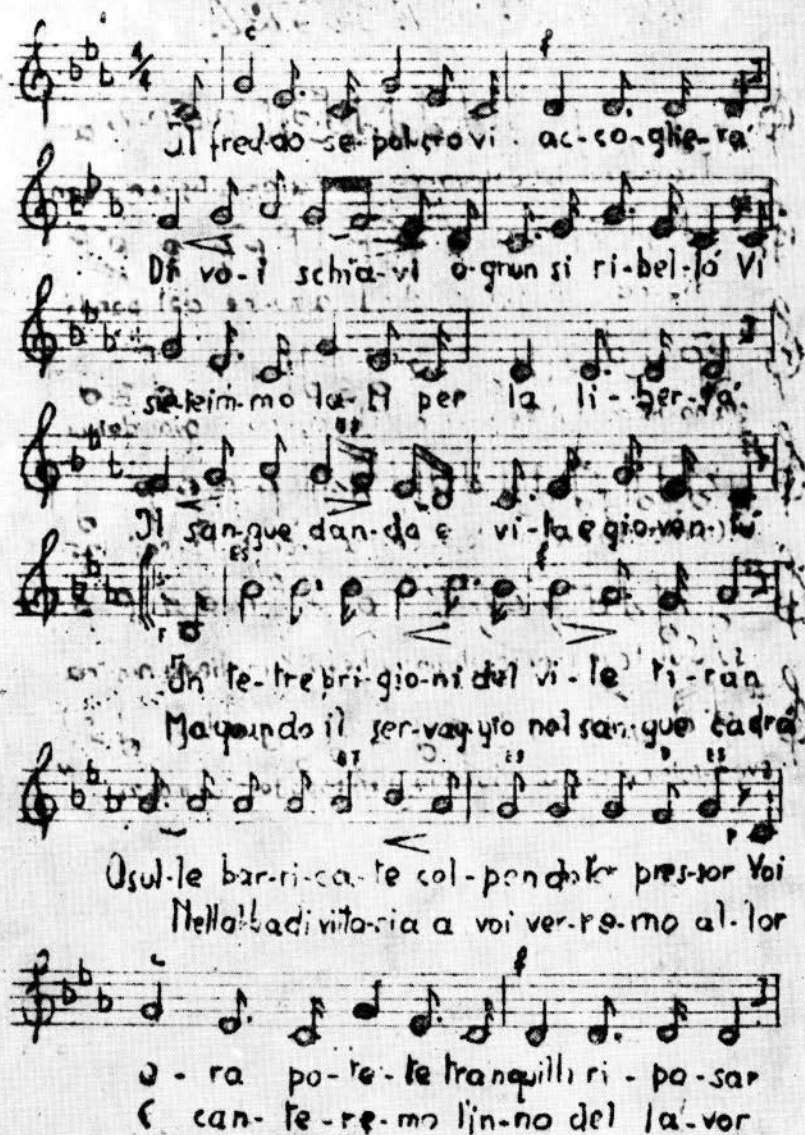 Il fred-do se-pol-cro vi ac-co-glie-rà
Di vo-i schia-vi o-gnun si ri-bel-lò Vi
siete im-mo la-ti per la li-ber-tà
Il san-gue dan-do e vi-ta e gio-ven-tù
In te-tre bri-gio-ni del vi-le ti-ran
Ma quando il ser-vag-gio nel san-gue cadrà
O sul-le bar-ri-ca-te col-pen do pres-sor Voi
Nell'alba di vitto-ria a voi ver-re-mo al-lor
o-ra po-te-te tranquilli ri-po-sar
E can-te-re-mo l'in-no del la-vor